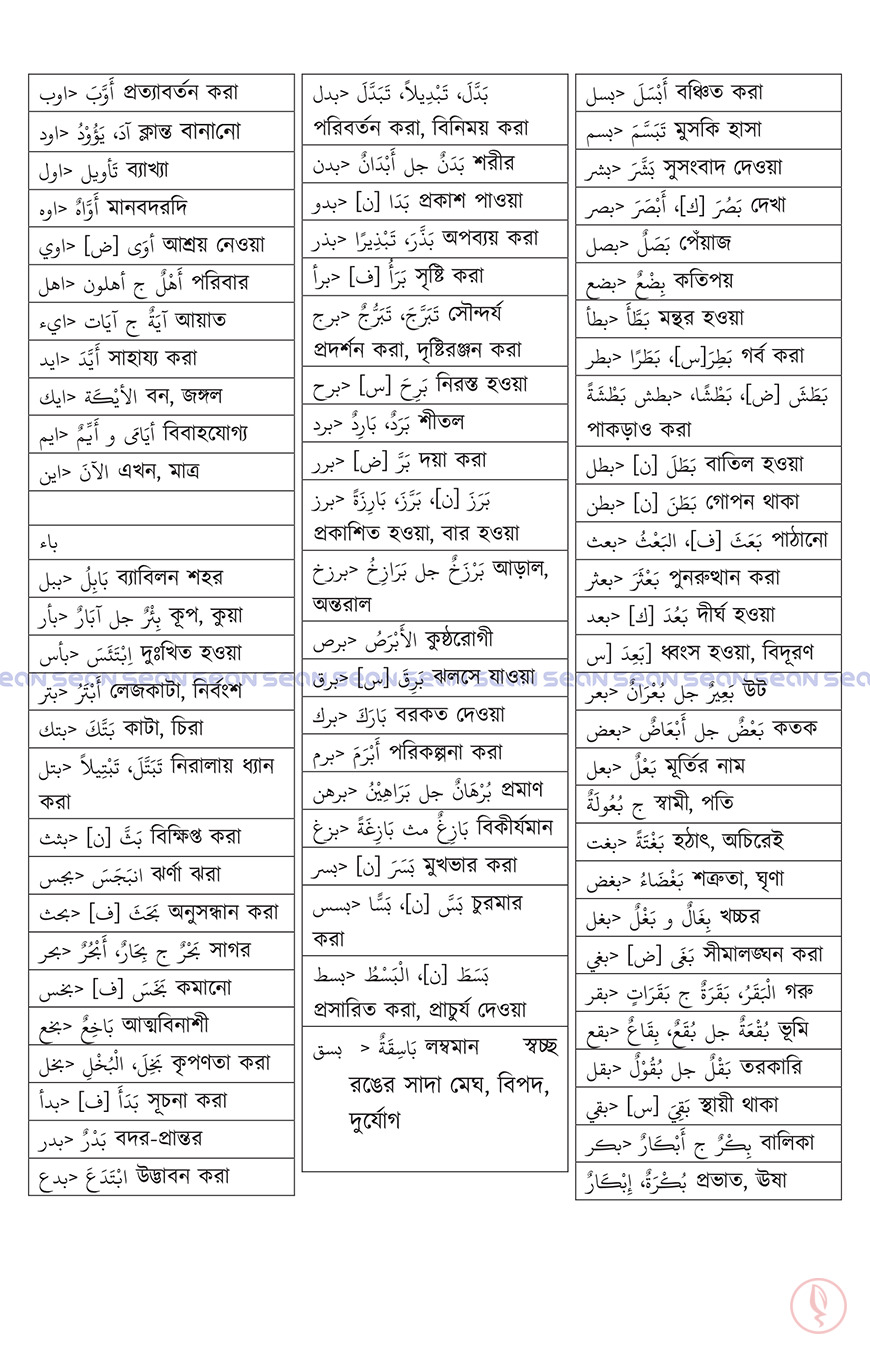 اوب> أَوَّبَ প্রত্যাবর্তন করা
اود> آدَ، يَؤُوْدُ ক্লান্ত বানানো
اول> تَأويل ব্যাখ্যা
اوه> أَوَّاهٌ মানবদরদি
اوي> أَوٰى [ض] আশ্রয় নেওয়া
اهل> أَهْلٌ ج أهلون পরিবার
ايء> آيَةٌ ج آيَات আয়াত
ايد> أَيَّدَ সাহায্য করা
ايك> الأَيْكَة বন, জঙ্গল
ايم> أَيَامٰى و أَيِّمٌ বিবাহযোগ্য
اين> الآنَ এখন, মাত্র
باء
ببل> بَابِلُ ব্যাবিলন শহর
بأر> بِئْرٌ جل آبَارٌ কূপ, কুয়া
بأس> اِبْتَئَسَ দুঃখিত হওয়া
بتر> أَبْتَرُ লেজকাটা, নির্বংশ
بتك> بَتَّكَ কাটা, চিরা
بتل> تَبَتَّلَ، تَبْتِيلاً নিরালায় ধ্যান
করা
بثث> بَثَّ [ن] বিক্ষিপ্ত করা
بجس> انبَجَسَ ঝর্ণা ঝরা
بحث> بَحَثَ [ف] অনুসন্ধান করা
بحر> بَحْرٌ ج بِحَارٌ، أَبْحُرٌ সাগর
بخس> بَخَسَ [ف] কমানো
بخع> بَاخِعٌ আত্মবিনাশী
بخل> بَخِلَ، الْبُخْلِ কৃপণতা করা
بدأ> بَدَأَ [ف] সূচনা করা
بدر> بَدْرٌ বদর-প্রান্তর
بدع> ابْتَدَعَ উদ্ভাবন করা
بدل> بَدَّلَ، تَبْدِيلاً، تَبَدَّلَ
পরিবর্তন করা, বিনিময় করা
بدن> بَدَنٌ جل أَبْدَانٌ শরীর
بدو> بَدَا [ن] প্রকাশ পাওয়া
بذر> بَذَّرَ، تَبْذِيرًا অপব্যয় করা
برأ> بَرَأَ [ف] সৃষ্টি করা
برج> تَبَرَّجَ، تَبَرُّجٌ সৌন্দর্য
প্রদর্শন করা, দৃষ্টিরঞ্জন করা
برح> بَرِحَ [س] নিরস্ত হওয়া
برد> بَرَدٌ، بَارِدٌ শীতল
برر> بَرَّ [ض] দয়া করা
برز> بَرَزَ [ن]، بَرَّزَ، بَارِزَةً
প্রকাশিত হওয়া, বার হওয়া
برزخ> بَرْزَخٌ جل بَرَازِخُ আড়াল,
অন্তরাল
برص> الأَبْرَصُ কুষ্ঠরোগী
برق> بَرِقَ [س] ঝলসে যাওয়া
برك> بَارَكَ বরকত দেওয়া
برم> أَبْرَمَ পরিকল্পনা করা
برهن> بُرْهَانٌ جل بَرَاهِيْنُ প্রমাণ
بزغ> بَازِغٌ مث بَازِغَةً বিকীর্যমান
بسر> بَسَرَ [ن] মুখভার করা
بسس> بَسَّ [ن]، بَسًّا চুরমার
করা
بسط> بَسَطَ [ن]، الْبَسْطُ
প্রসারিত করা, প্রাচুর্য দেওয়া
بسق > بَاسِقَةٌ লম্বমান স্বচ্ছ
রঙের সাদা মেঘ, বিপদ,
দুর্যোগ
بسل> أَبْسَلَ বঞ্চিত করা
بسم> تَبَسَّمَ মুসকি হাসা
بشر> بَشَّرَ সুসংবাদ দেওয়া
بصر> بَصُرَ [ك]، أَبْصَرَ দেখা
بصل> بَصَلٌ পেঁয়াজ
بضع> بِضْعٌ কতিপয়
بطأ> بَطَّأَ মন্থর হওয়া
بطر> بَطِرَ[س]، بَطَرًا গর্ব করা
بطش> بَطَشَ [ض]، بَطْشًا، بَطْشَةً
পাকড়াও করা
بطل> بَطَلَ [ن] বাতিল হওয়া
بطن> بَطَنَ [ن] গোপন থাকা
بعث> بَعَثَ [ف]، البَعْثُ পাঠানো
بعثر> بَعْثَرَ পুনরুত্থান করা
بعد> بَعُدَ [ك] দীর্ঘ হওয়া
بَعِدَ [س] ধ্বংস হওয়া, বিদূরণ
بعر> بَعِيرٌ جل بُعْرَانٌ উট
بعض> بَعْضٌ جل أَبْعَاضٌ কতক
بعل> بَعْلٌ মূর্তির নাম
ج بُعُولَةٌ স্বামী, পতি
بغت> بَغْتَةً হঠাৎ, অচিরেই
بغض> بَغْضَاءُ শত্রুতা, ঘৃণা
بغل> بِغَالٌ و بَغْلٌ খচ্চর
بغي> بَغَى [ض] সীমালঙ্ঘন করা
بقر> الْبَقَرُ، بَقَرَةٌ ج بَقَرَاتٍ গরু
بقع> بُقْعَةٌ جل بُقَعٌ، بِقَاعٌ ভূমি
بقل> بَقْلٌ جل بُقُوْلٌ তরকারি
بقي> بَقِيَ [س] স্থায়ী থাকা
بكر> بِكْرٌ ج أَبْكَارٌ বালিকা
بُكْرَةٌ، إِبْكَارٌ প্রভাত, ঊষা
sean sean sean sean sean sean sean sean sean sean sean sean